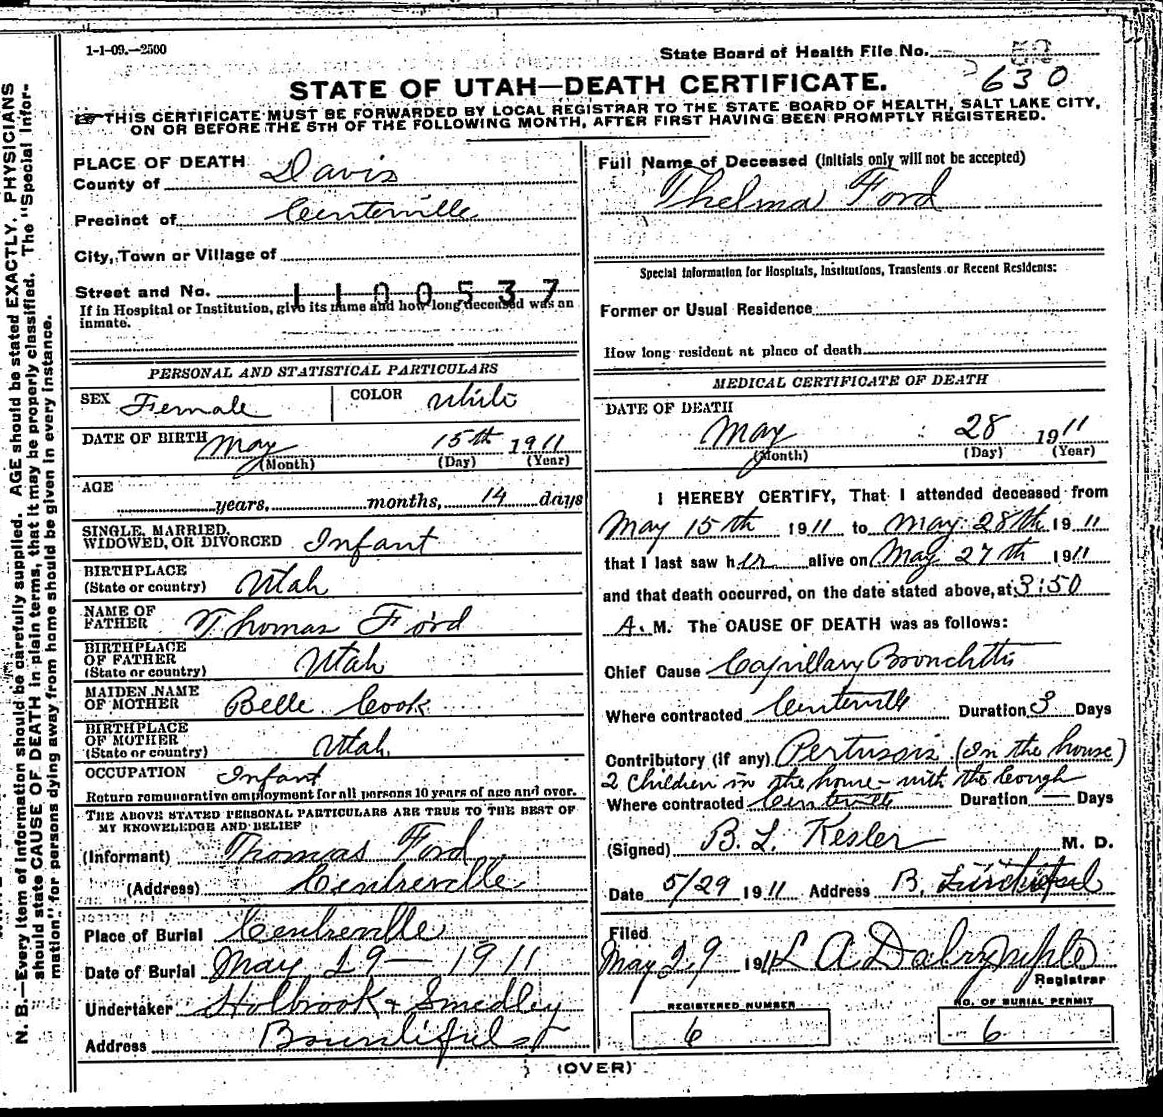 1-1-09.—2500
State Board of Health File No. 52
630
STATE OF UTAH—DEATH CERTIFICATE.
THIS CERTIFICATE MUST BE FORWARDED BY LOCAL REGISTRAR TO THE STATE BOARD OF HEALTH, SALT LAKE CITY,
ON OR BEFORE THE 5TH OF THE FOLLOWING MONTH, AFTER FIRST HAVING BEEN PROMPTLY REGISTERED.
N. B.—Every item of information should be carefully supplied. AGE should be stated EXACTLY. PHYSICIANS
should state CAUSE OF DEATH in plain terms, that it may be properly classified. The "Special Infor-
mation" for persons dying away from home should be given in every instance.
PLACE OF DEATH
County of Davis
Precinct of Centerville
City, Town or Village of
Street and No. 1100537
If in Hospital or Institution, give its name and how long deceased was an
inmate.
PERSONAL AND STATISTICAL PARTICULARS
SEX Female COLOR White
DATE OF BIRTH May 15th 1911
(Month) (Day) (Year)
AGE years, months, 14 days
SINGLE, MARRIED,
WIDOWED, OR DIVORCED Infant
BIRTHPLACE
(State or country) Utah
NAME OF
FATHER Thomas Ford
BIRTHPLACE
OF FATHER
(State or country) Utah
MAIDEN NAME
OF MOTHER Belle Cook
BIRTHPLACE
OF MOTHER
(State or country) Utah
OCCUPATION Infant
Return remunerative employment for all persons 10 years of age and over.
THE ABOVE STATED PERSONAL PARTICULARS ARE TRUE TO THE BEST OF
MY KNOWLEDGE AND BELIEF
(Informant) Thomas Ford
(Address) Centreville
Place of Burial Centreville
Date of Burial May 29— 1911
Undertaker Holbrook & Smedley
Address Bountiful
Full Name of Deceased (initials only will not be accepted)
Thelma Ford
Special Information for Hospitals, Institutions, Transients or Recent Residents:
Former or Usual Residence
How long resident at place of death
MEDICAL CERTIFICATE OF DEATH
DATE OF DEATH
May 28 1911
(Month) (Day) (Year)
I HEREBY CERTIFY, That I attended deceased from
May 15th 1911 to May 28th 1911
that I last saw her alive on May 27th 1911
and that death occurred, on the date stated above, at 3:50
A. M. The CAUSE OF DEATH was as follows:
Chief Cause Capillary Bronchitis
Where contracted Centerville Duration 3 Days
Contributory (if any) Pertussis (In the house)
2 Children in the house - with the Cough
Where contracted Centerville Duration — Days
(Signed) B. L. Kesler M. D.
Date 5/29 1911 Address B.
Filed
May 29 1911 L A Dalrymple
Registrar
REGISTERED NUMBER
6
NO. OF BURIAL PERMIT
6
(OVER)